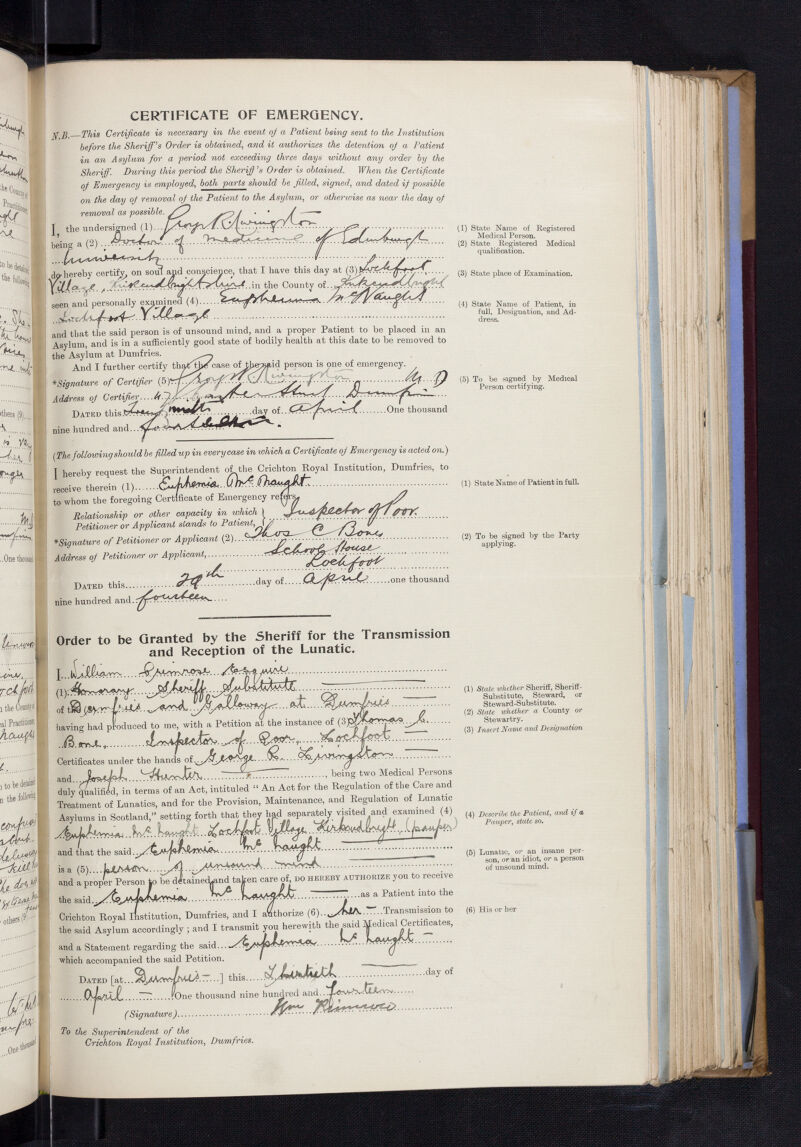 CERTIFICATE OF EMERGENCY.
N.B.—This Certificate is necessary in the event of a Patient being sent to the Institution
before the Sheriff's Order is obtained, and it authorizes the detention of a Patient
in an Asylum for a period not exceeding three days without any order by the
Sheriff. During this period the Sheriff's Order is obtained. When the Certificate
of Emergency is employed, both parts should be filled, signed, and dated if possible
on the day of removal of the Patient to the Asylum, or otherwise as near the day of
removal as possible.
I, the undersigned (1) Geo. R. Livingston
being a (2) Doctor of medicine of Edinburgh
University
do hereby certify, on soul and conscience, that I have this day at (3) Lochfoot
Village, Kirkcudbrightshire in the County of Kirkcudbright
seen and personally examined (4) Euphemia McNaught
Lochfoot Village
and that the said person is of unsound mind, and a proper Patient to be placed in an
Asylum, and is in a sufficiently good state of bodily health at this date to be removed to
the Asylum at Dumfries.
And I further certify that the case of the said person is one of emergency.
*Signature of Certifier (5) Geo. R. Livingston M.D
Address of Certifier 47 Castle Street Dumfries
DATED this Twenty ninth day of April One thousand
nine hundred and fourteen.
(1) State Name of Registered
Medical Person.
(2) State Registered Medical
qualification.
(3) State place of Examination.
(4) State Name of Patient, in
full, Designation, and Ad-
dress.
(5) To be signed by Medical
Person certifying.
(The following should be filled up in every case in which a Certificate of Emergency is acted on.)
I hereby request the Superintendent of the Crichton Royal Institution, Dumfries, to
receive therein (1) Euphemia McNaught
to whom the foregoing Certificate of Emergency refers.
Relationship or other capacity in which } Inspector of Poor.
Petitioner or Applicant stands to Patient, }
*Signature of Petitioner or Applicant (2) Thos C Bone
Address of Petitioner or Applicant, School House
Lochfoot
DATED this 29th day of April one thousand
nine hundred and fourteen
(1) State Name of Patient in full.
(2) To be signed by the Party
applying.
Order to be Granted by the Sheriff for the Transmission
and Reception of the Lunatic.
I William Primrose Esquire
(1) Honorary Sheriff Substitute
of the Dumfries and Galloway at Dumfries
having had produced to me, with a Petition at the instance of (3) Thomas C.
Bone, Inspector of Poor, Lochfoot
Certificates under the hands of George R. Livingston
and Joseph Hunter, being two Medical Persons
duly qualified, in terms of an Act, intituled "An Act for the Regulation of the Care and
Treatment of Lunatics, and for the Provision, Maintenance, and Regulation of Lunatic
Asylums in Scotland," setting forth that they had separately visited and examined (4)
Euphemia McNaught Lochfoot Village Kirkcudbright (pauper)
and that the said Euphemia McNaught
is a (5) person of unsound mind
and a proper Person to be detained and taken care of, DO HEREBY AUTHORIZE you to receive
the said Euphemia McNaught as a Patient into the
Crichton Royal Institution, Dumfries, and I authorize (6) her Transmission to
the said Asylum accordingly; and I transmit you herewith the said Medical Certificates,
and a Statement regarding the said Euphemia McNaught
which accompanied the said Petition.
DATED [at Dumfries] this Thirtieth day of
April One thousand nine hundred and Fourteen
(Signature) Wm Primrose
To the Superintendent of the
Crichton Royal Institution, Dumfries.
(1) State whether Sheriff, Sheriff-
Substitute, Steward, or
Steward-Substitute.
(2) State whether a County or
Stewartry.
(3) Insert Name and Designation
(4) Describe the Patient, and if a
Pauper, state so.
(5) Lunatic, or an insane per-
son, or an idiot, or a person
of unsound mind.
(6) His or her